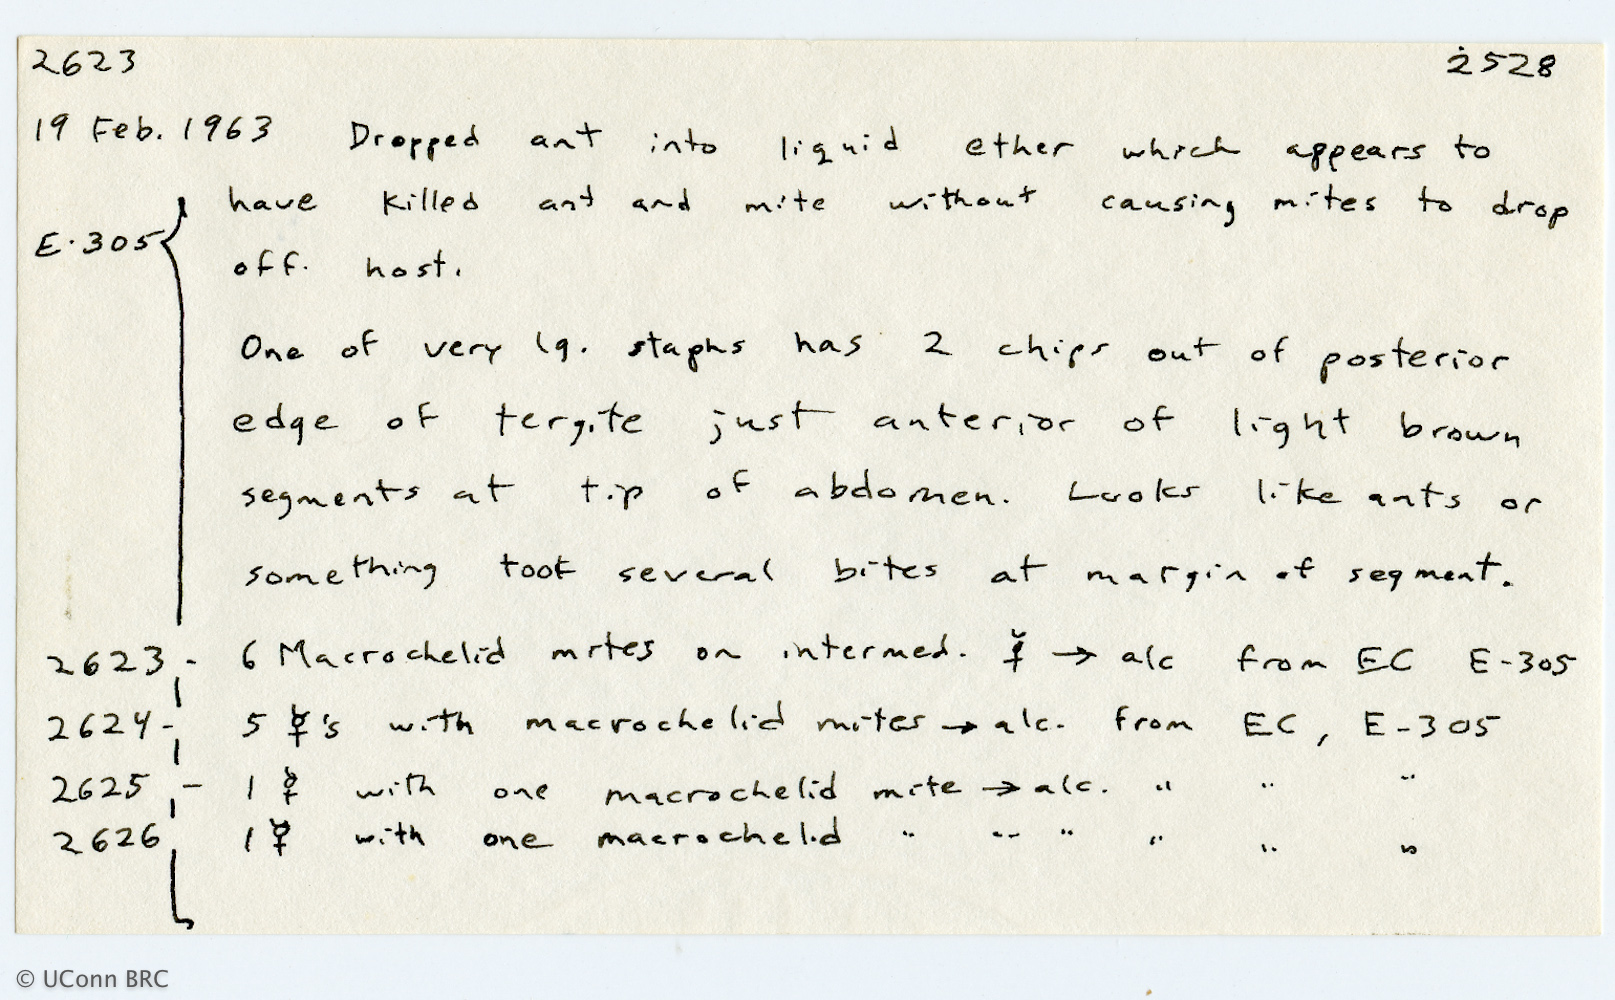 2623 2528
19 Feb. 1963 Dropped ant into liquid ether which appears to
have killed ant and mite without causing mites to drop
E-305 off. host.
One of very lg. staphs has 2 chips out of posterior
edge of tergite just anterior of light brown
segments at tip of abdomen. Looks like ants or
something took several bites at margin of segment.
2623 - 6 Macrochelid mites on intermed. ☿ → alc from EC E-305
2624 - 5 ☿'s with macrochelid mites → alc. from EC, E-305
2625 - 1 ☿ with one macrochelid mite → alc. " " "
2626 1 ☿ with one macrochelid " " " " " "
© UConn BRC